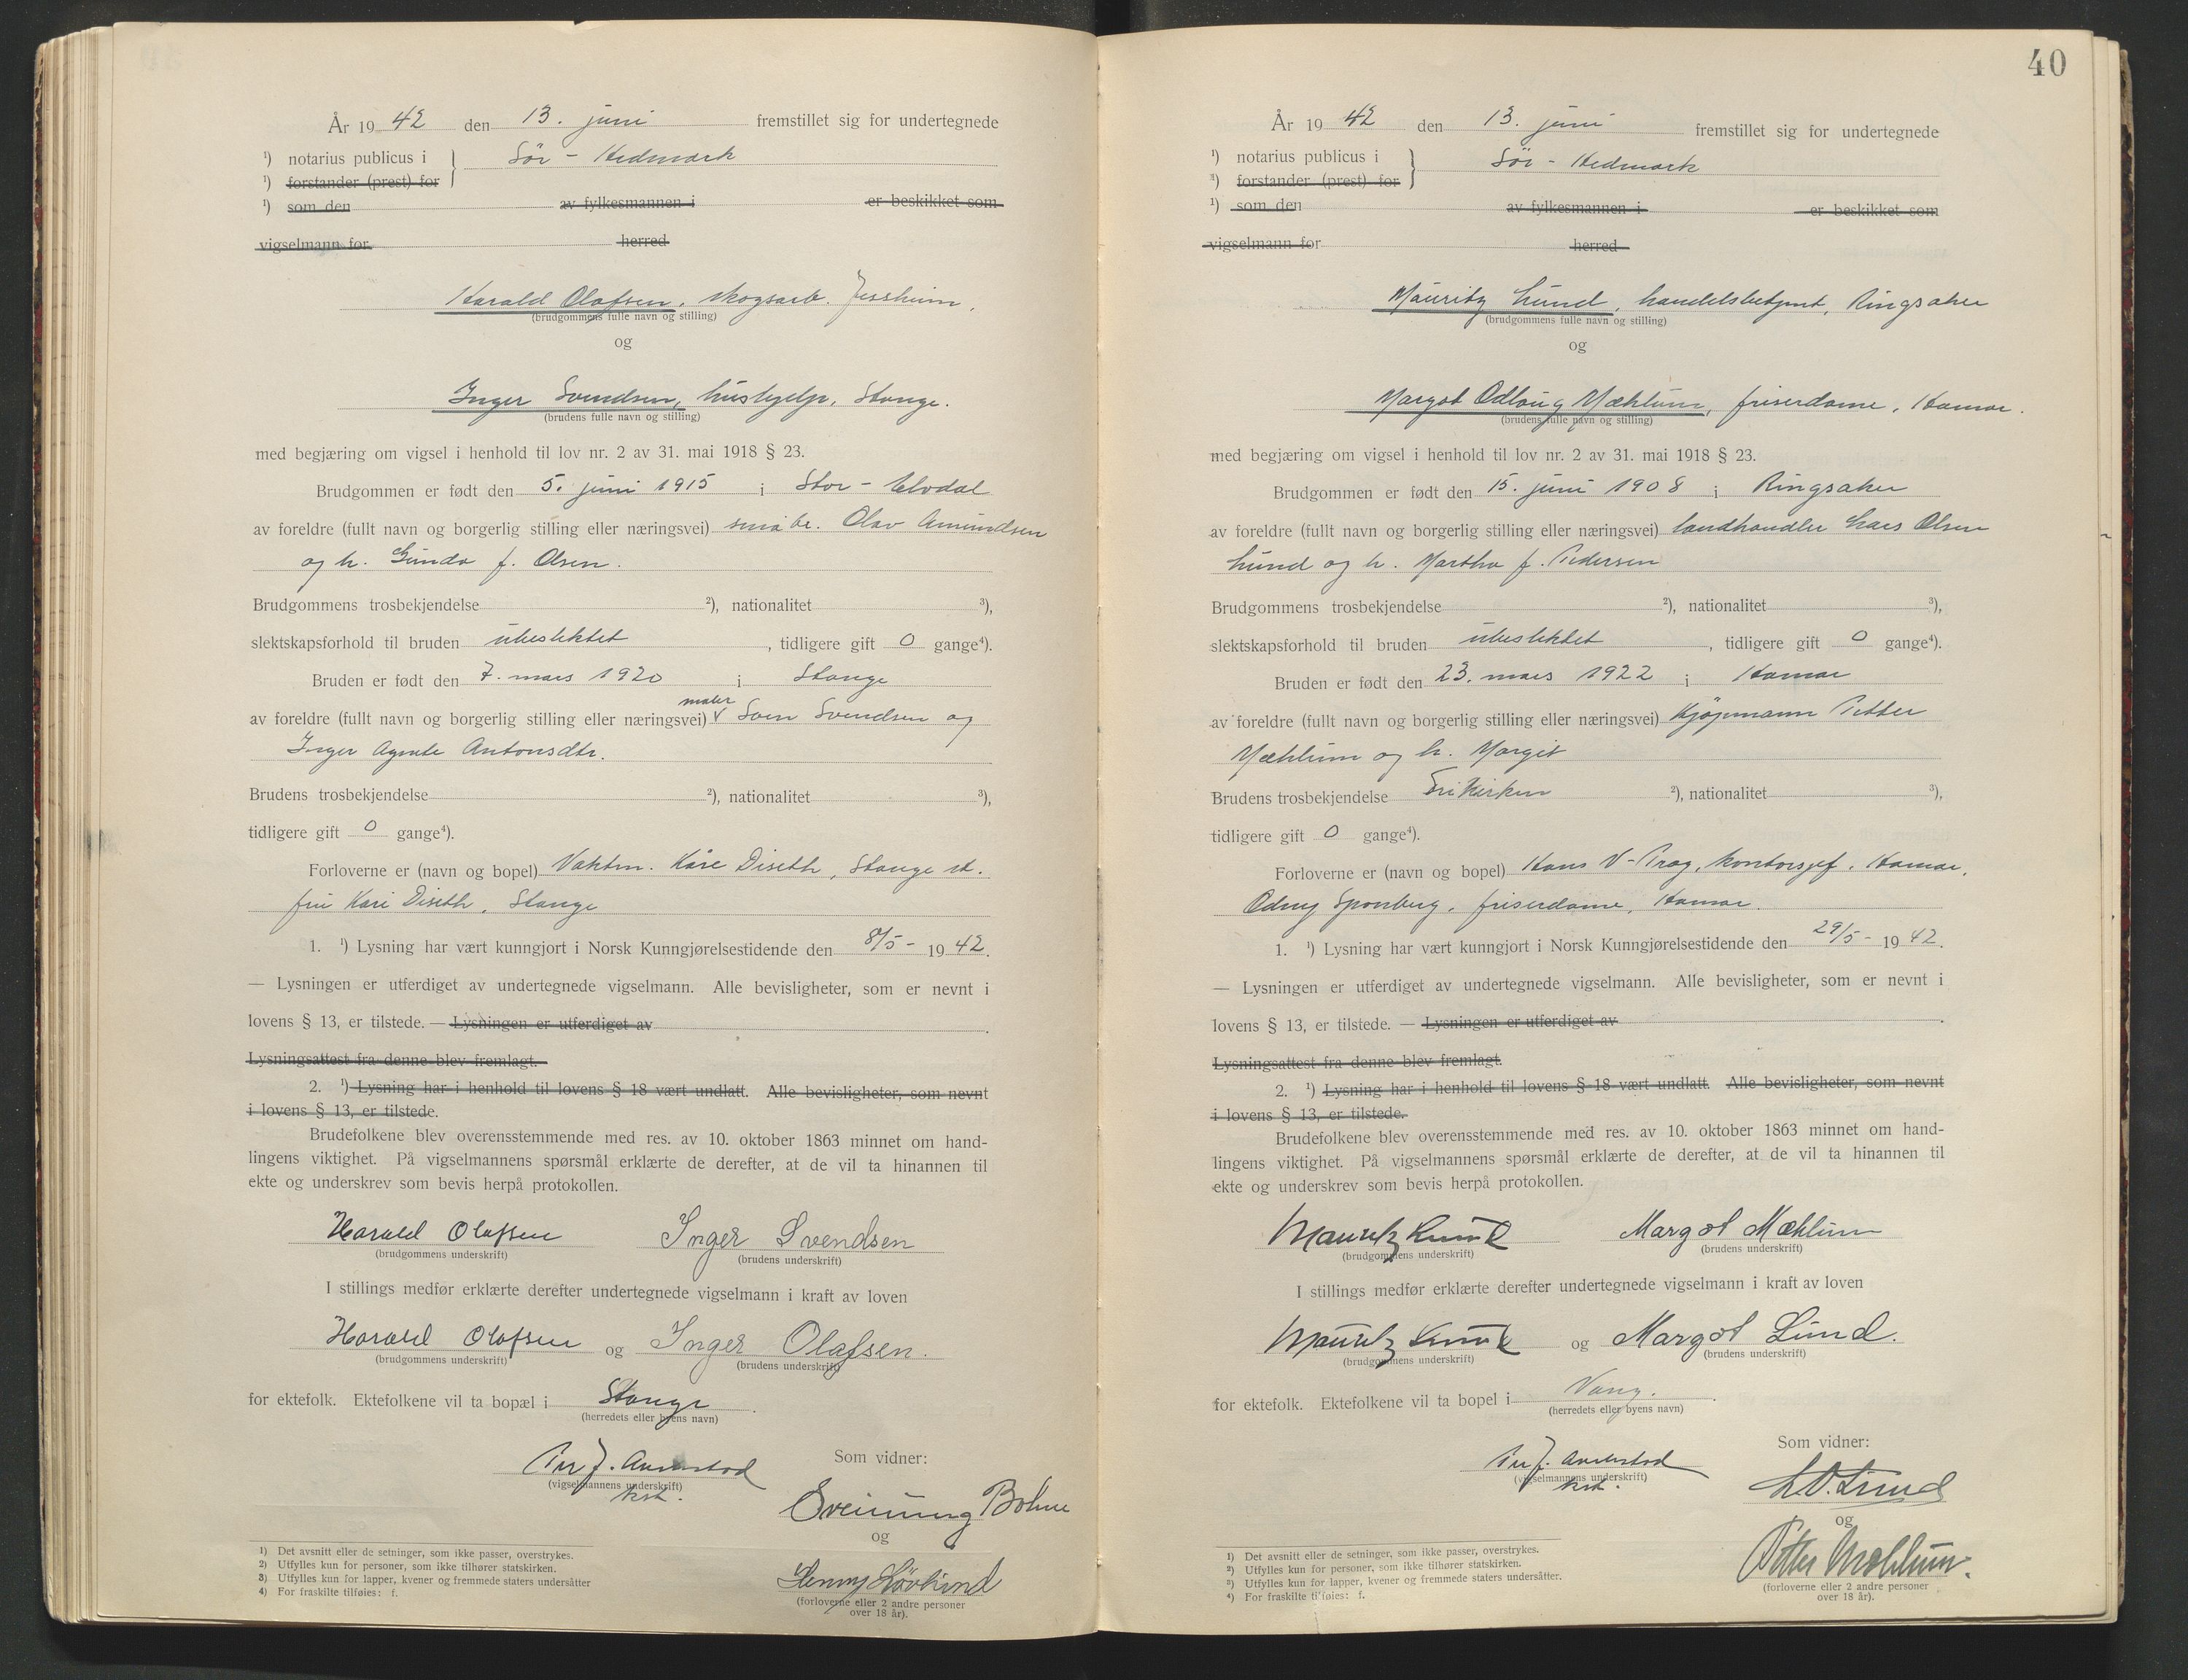 År 19 42 den 13. juni fremstillet sig for undertegnede
¹) notarius publicus i Sör - Hedmark
¹) forstander (prest) for
¹) som den av fylkesmannen i er beskikket som
vigselmann for herred
Harald Olafsen, skogsarb. Jessheim,
(brudgommens fulle navn og stilling)
og
Inger Svendsen, hushjelp, Stange.
(brudens fulle navn og stilling)
med begjæring om vigsel i henhold til lov nr. 2 av 31. mai 1918 § 23.
Brudgommen er født den 5. juni 1915 i Stor - Elvdal
av foreldre (fullt navn og borgerlig stilling eller næringsvei) småbr. Olav Amundsen
og h. Gunda f. Olsen.
Brudgommens trosbekjendelse ²), nationalitet ³),
slektskapsforhold til bruden ubeslektet , tidligere gift 0 gange⁴).
Bruden er født den 7. mars 1920 i Stange
av foreldre (fullt navn og borgerlig stilling eller næringsvei) maler Sven Svendsen og
Inger Agnete Antonsdtr.
Brudens trosbekjendelse ²), nationalitet ³),
tidligere gift 0 gange⁴).
Forloverne er (navn og bopel) Vaktm. Kåre Diseth, Stange st.
fru Kari Diseth, Stange
1. ¹) Lysning har vært kunngjort i Norsk Kunngjørelsestidende den 8/5 - 19 42.
— Lysningen er utferdiget av undertegnede vigselmann. Alle bevisligheter, som er nevnt i
lovens § 13, er tilstede. — Lysningen er utferdiget av .
Lysningsattest fra denne blev fremlagt.
2. ¹) Lysning har i henhold til lovens § 18 vært undlatt. Alle bevisligheter, som nevnt
i lovens § 13, er tilstede.
Brudefolkene blev overensstemmende med res. av 10. oktober 1863 minnet om hand-
lingens viktighet. På vigselmannens spørsmål erklærte de derefter, at de vil ta hinannen til
ekte og underskrev som bevis herpå protokollen.
Harald Olafsen Inger Svendsen
(brudgommens underskrift) (brudens underskrift)
I stillings medfør erklærte derefter undertegnede vigselmann i kraft av loven
Harald Olafsen og Inger Olafsen.
(brudgommens underskrift) (brudens underskrift)
for ektefolk. Ektefolkene vil ta bopæl i Stange .
(herredets eller byens navn)
Per J. Aunestad Som vidner:
(vigselmannens underskrift)
kst. Sveinung Bohne
og
Henny Lövlund
(forloverne eller 2 andre personer
over 18 år).
1) Det avsnitt eller de setninger, som ikke passer, overstrykes.
2) Utfylles kun for personer, som ikke tilhører statskirken.
3) Utfylles kun for lapper, kvener og fremmede staters undersåtter
4) For fraskilte tilføies: f.
40
År 19 42 den 13. juni fremstillet sig for undertegnede
¹) notarius publicus i Sör - Hedmark
¹) forstander (prest) for
¹) som den av fylkesmannen i er beskikket som
vigselmann for herred
Mauritz Lund, handelsbetjent, Ringsaker
(brudgommens fulle navn og stilling)
og
Margot Odlaug Mæhlum, friserdame, Hamar.
(brudens fulle navn og stilling)
med begjæring om vigsel i henhold til lov nr. 2 av 31. mai 1918 § 23.
Brudgommen er født den 15. juni 1908 i Ringsaker
av foreldre (fullt navn og borgerlig stilling eller næringsvei) landhandler Lars Olsen
Lund og h. Martha f. Pedersen
Brudgommens trosbekjendelse ²), nationalitet ³),
slektskapsforhold til bruden ubeslektet , tidligere gift 0 gange⁴).
Bruden er født den 23. mars 1922 i Hamar
av foreldre (fullt navn og borgerlig stilling eller næringsvei) Kjöpmann Petter
Mæhlum og h. Margit
Brudens trosbekjendelse Frikirken ²), nationalitet ³),
tidligere gift 0 gange⁴).
Forloverne er (navn og bopel) Hans V-Prag, kontorsjef, Hamar,
Odny Sponberg, friserdame, Hamar.
1. ¹) Lysning har vært kunngjort i Norsk Kunngjørelsestidende den 29/5 - 19 42.
— Lysningen er utferdiget av undertegnede vigselmann. Alle bevisligheter, som er nevnt i
lovens § 13, er tilstede. — Lysningen er utferdiget av .
Lysningsattest fra denne blev fremlagt.
2. ¹) Lysning har i henhold til lovens § 18 vært undlatt. Alle bevisligheter, som nevnt
i lovens § 13, er tilstede.
Brudefolkene blev overensstemmende med res. av 10. oktober 1863 minnet om hand-
lingens viktighet. På vigselmannens spørsmål erklærte de derefter, at de vil ta hinannen til
ekte og underskrev som bevis herpå protokollen.
Mauritz Lund Margot Mæhlum
(brudgommens underskrift) (brudens underskrift)
I stillings medfør erklærte derefter undertegnede vigselmann i kraft av loven
Mauritz Lund og Margot Lund.
(brudgommens underskrift) (brudens underskrift)
for ektefolk. Ektefolkene vil ta bopel i Vang. .
(herredets eller byens navn)
Per J. Aunestad Som vidner:
(vigselmannens underskrift)
kst. L.O. Lund
og
Petter Mæhlum.
(forloverne eller 2 andre personer
over 18 år).
1) Det avsnitt eller de setninger, som ikke passer, overstrykes.
2) Utfylles kun for personer, som ikke tilhører statskirken.
3) Utfylles kun for lapper, kvener og fremmede staters undersåtter.
4) For fraskilte tilføies: f.